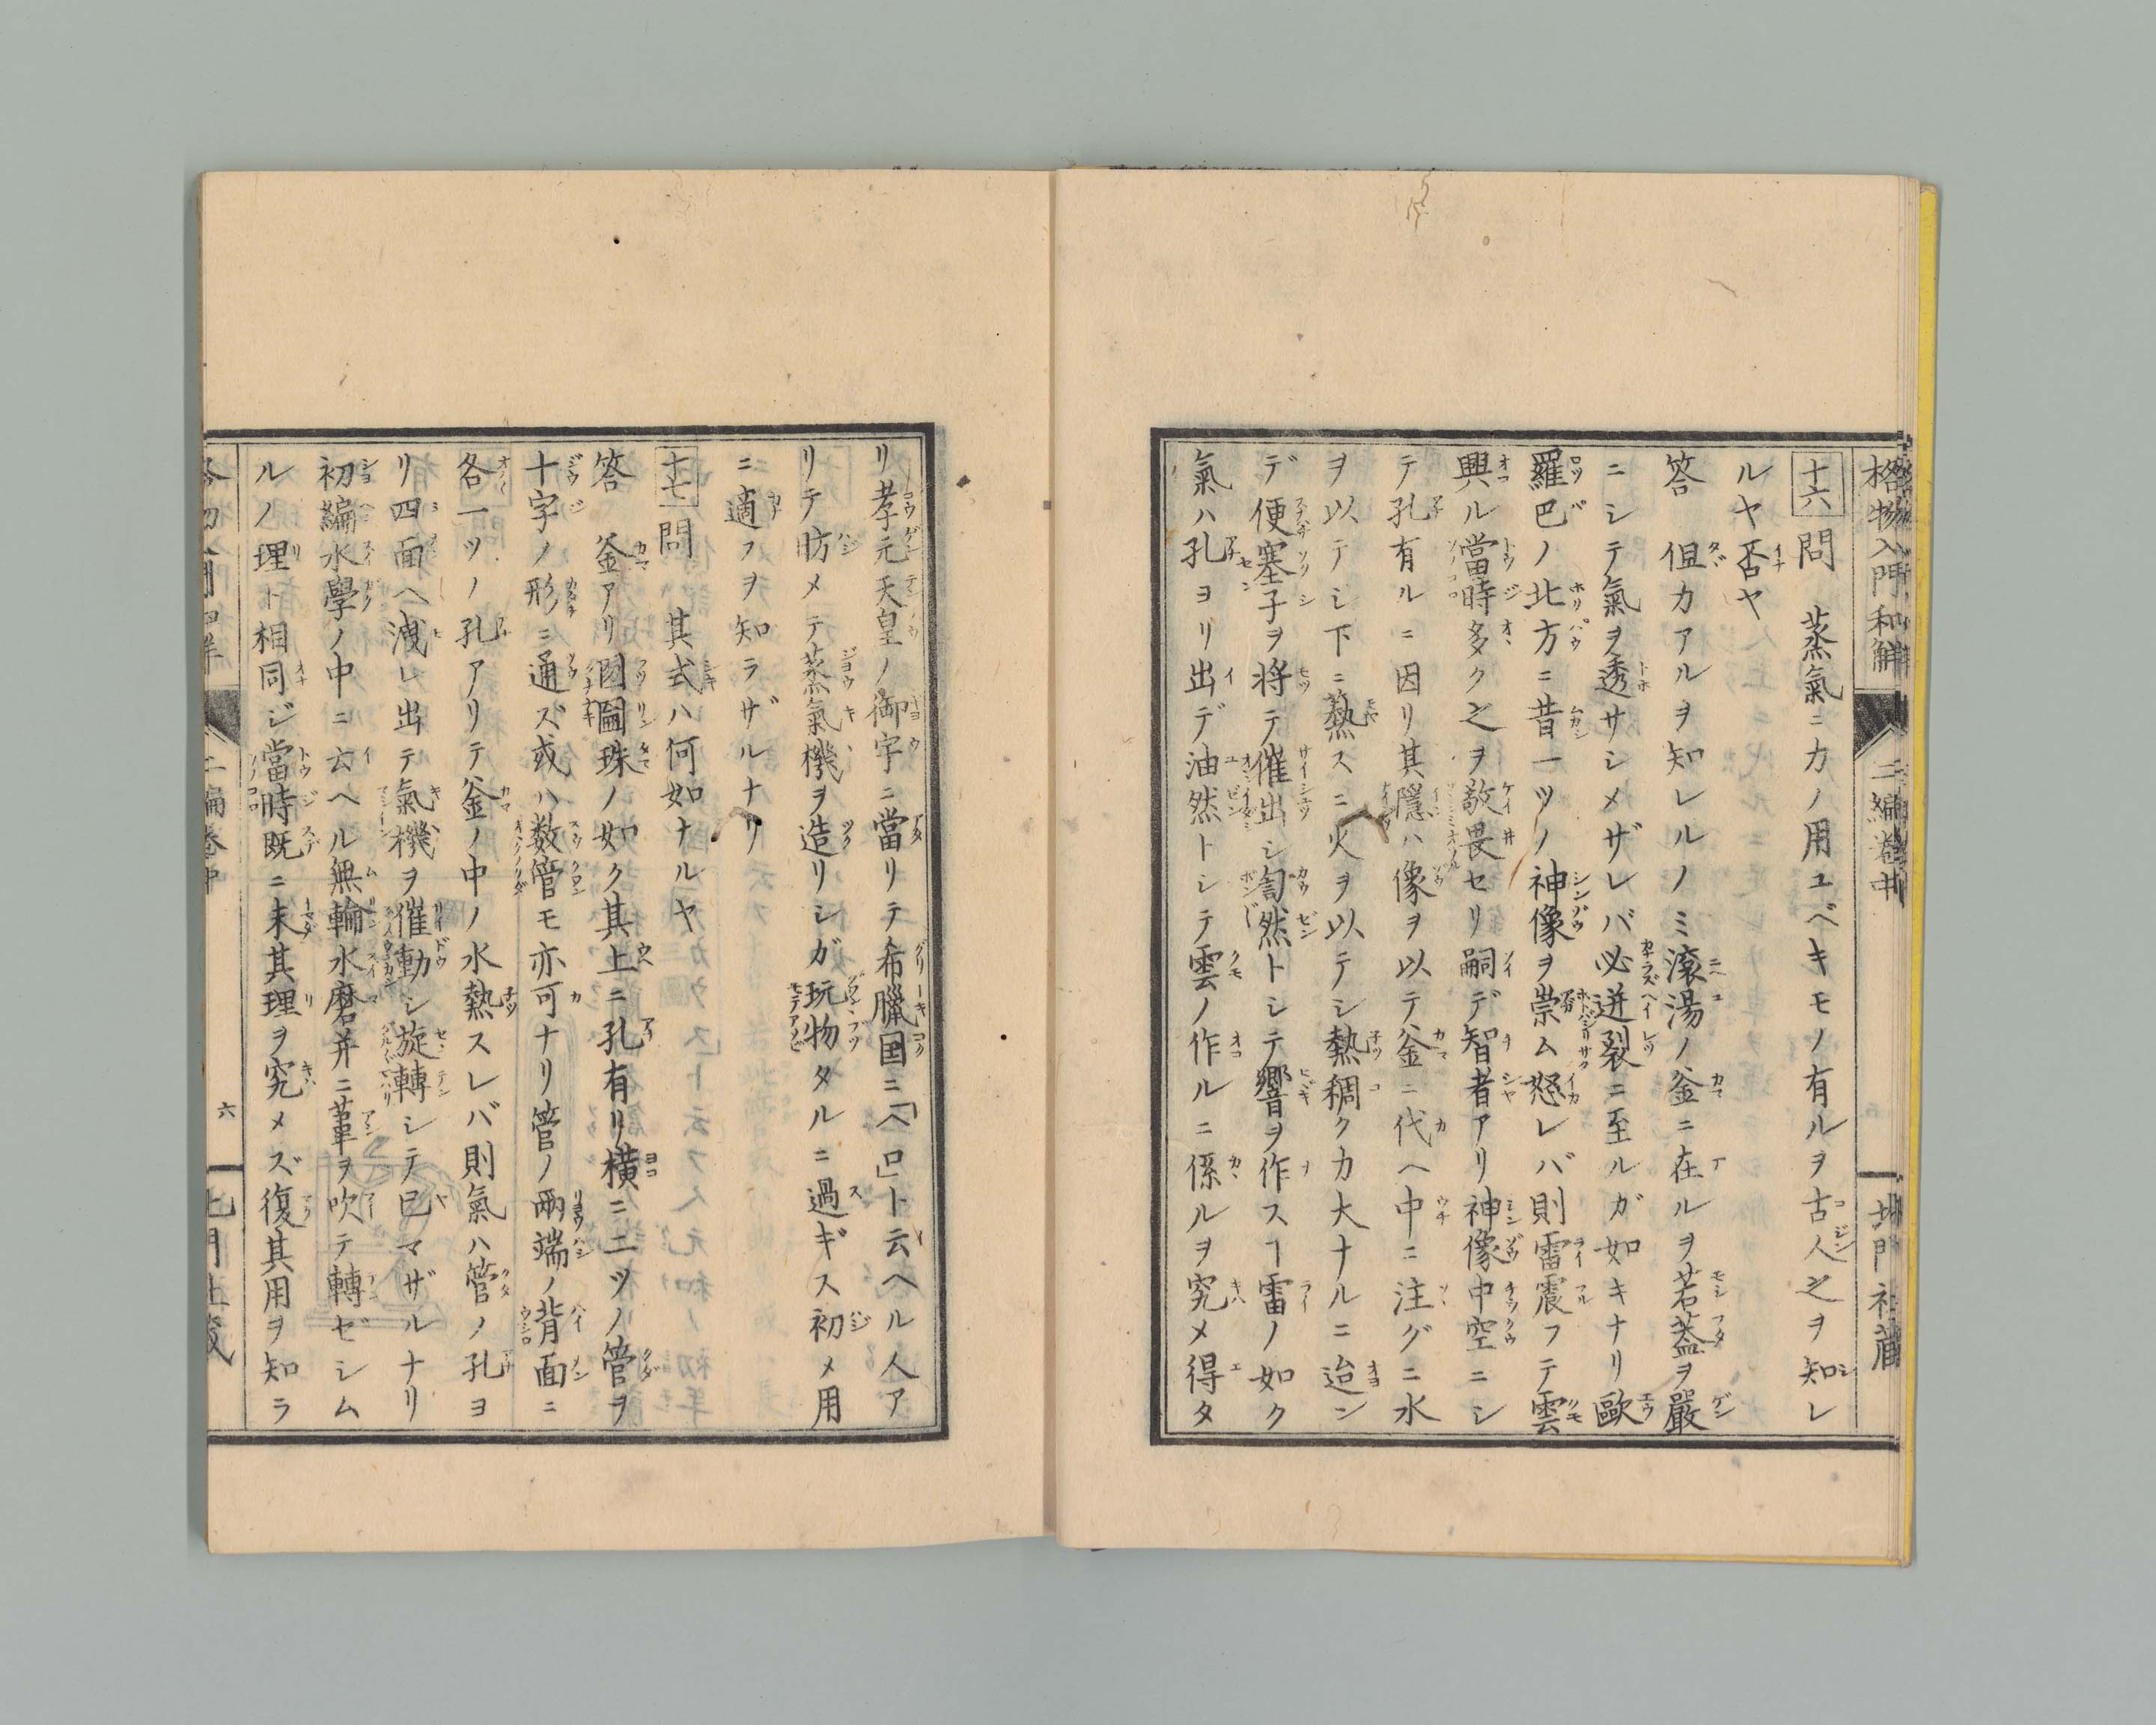 格物入門和解 二編巻中 北門社藏
十六 問 蒸氣ニカノ用ユベキモノ有ルヲ古人之ヲ知レ
ルヤ否ヤ
答 但カアルヲ知レルノミ滾湯ノ釜ニ在ルヲ若蓋ヲ嚴
ニシテ氣ヲ透サシメザレバ必迸裂ニ至ルガ如キナリ歐
羅巴ノ北方ニ昔一ツノ神像ヲ崇ム怒レバ則雷震フテ雲
興ル當時多ク之ヲ敬畏セリ嗣デ智者アリ神像中空ニシ
テ孔有ルニ因リ其隱ハ像ヲ以テ釜ニ代ヘ中ニ注グニ水
ヲ以テシ下ニ爇スニ火ヲ以テシ熱稠クカ大ナルニ迨ン
デ便塞子ヲ将テ催出シ訇然トシテ響ヲ作スヿ雷ノ如ク
氣ハ孔ヨリ出デ油然トシテ雲ノ作ルニ係ルヲ究メ得タ
リ孝元天皇ノ御宇ニ當リテ希臘国ニ「ヘロ」ト云ヘル人ア
リテ昉メテ蒸氣機ヲ造リシガ玩物タルニ過ギス初メ用
ニ適フヲ知ラザルナリ
十七 問 其式ハ何如ナルヤ
答 釜アリ圀圖珠ノ如ク其上ニ孔有リ横ニ二ツノ管ヲ
十字ノ形ニ通ズ或ハ数管モ亦可ナリ管ノ兩端ノ背面ニ
各一ツノ孔アリテ釜ノ中ノ水熱スレバ則氣ハ管ノ孔ヨ
リ四面ヘ洩レ出テ氣機ヲ催動シ旋轉シテ已マザルナリ
初編水學ノ中ニ云ヘル無輪水磨并ニ革ヲ吹テ轉ゼシム
ルノ理ト相同ジ當時既ニ未其理ヲ究メズ復其用ヲ知ラ
六